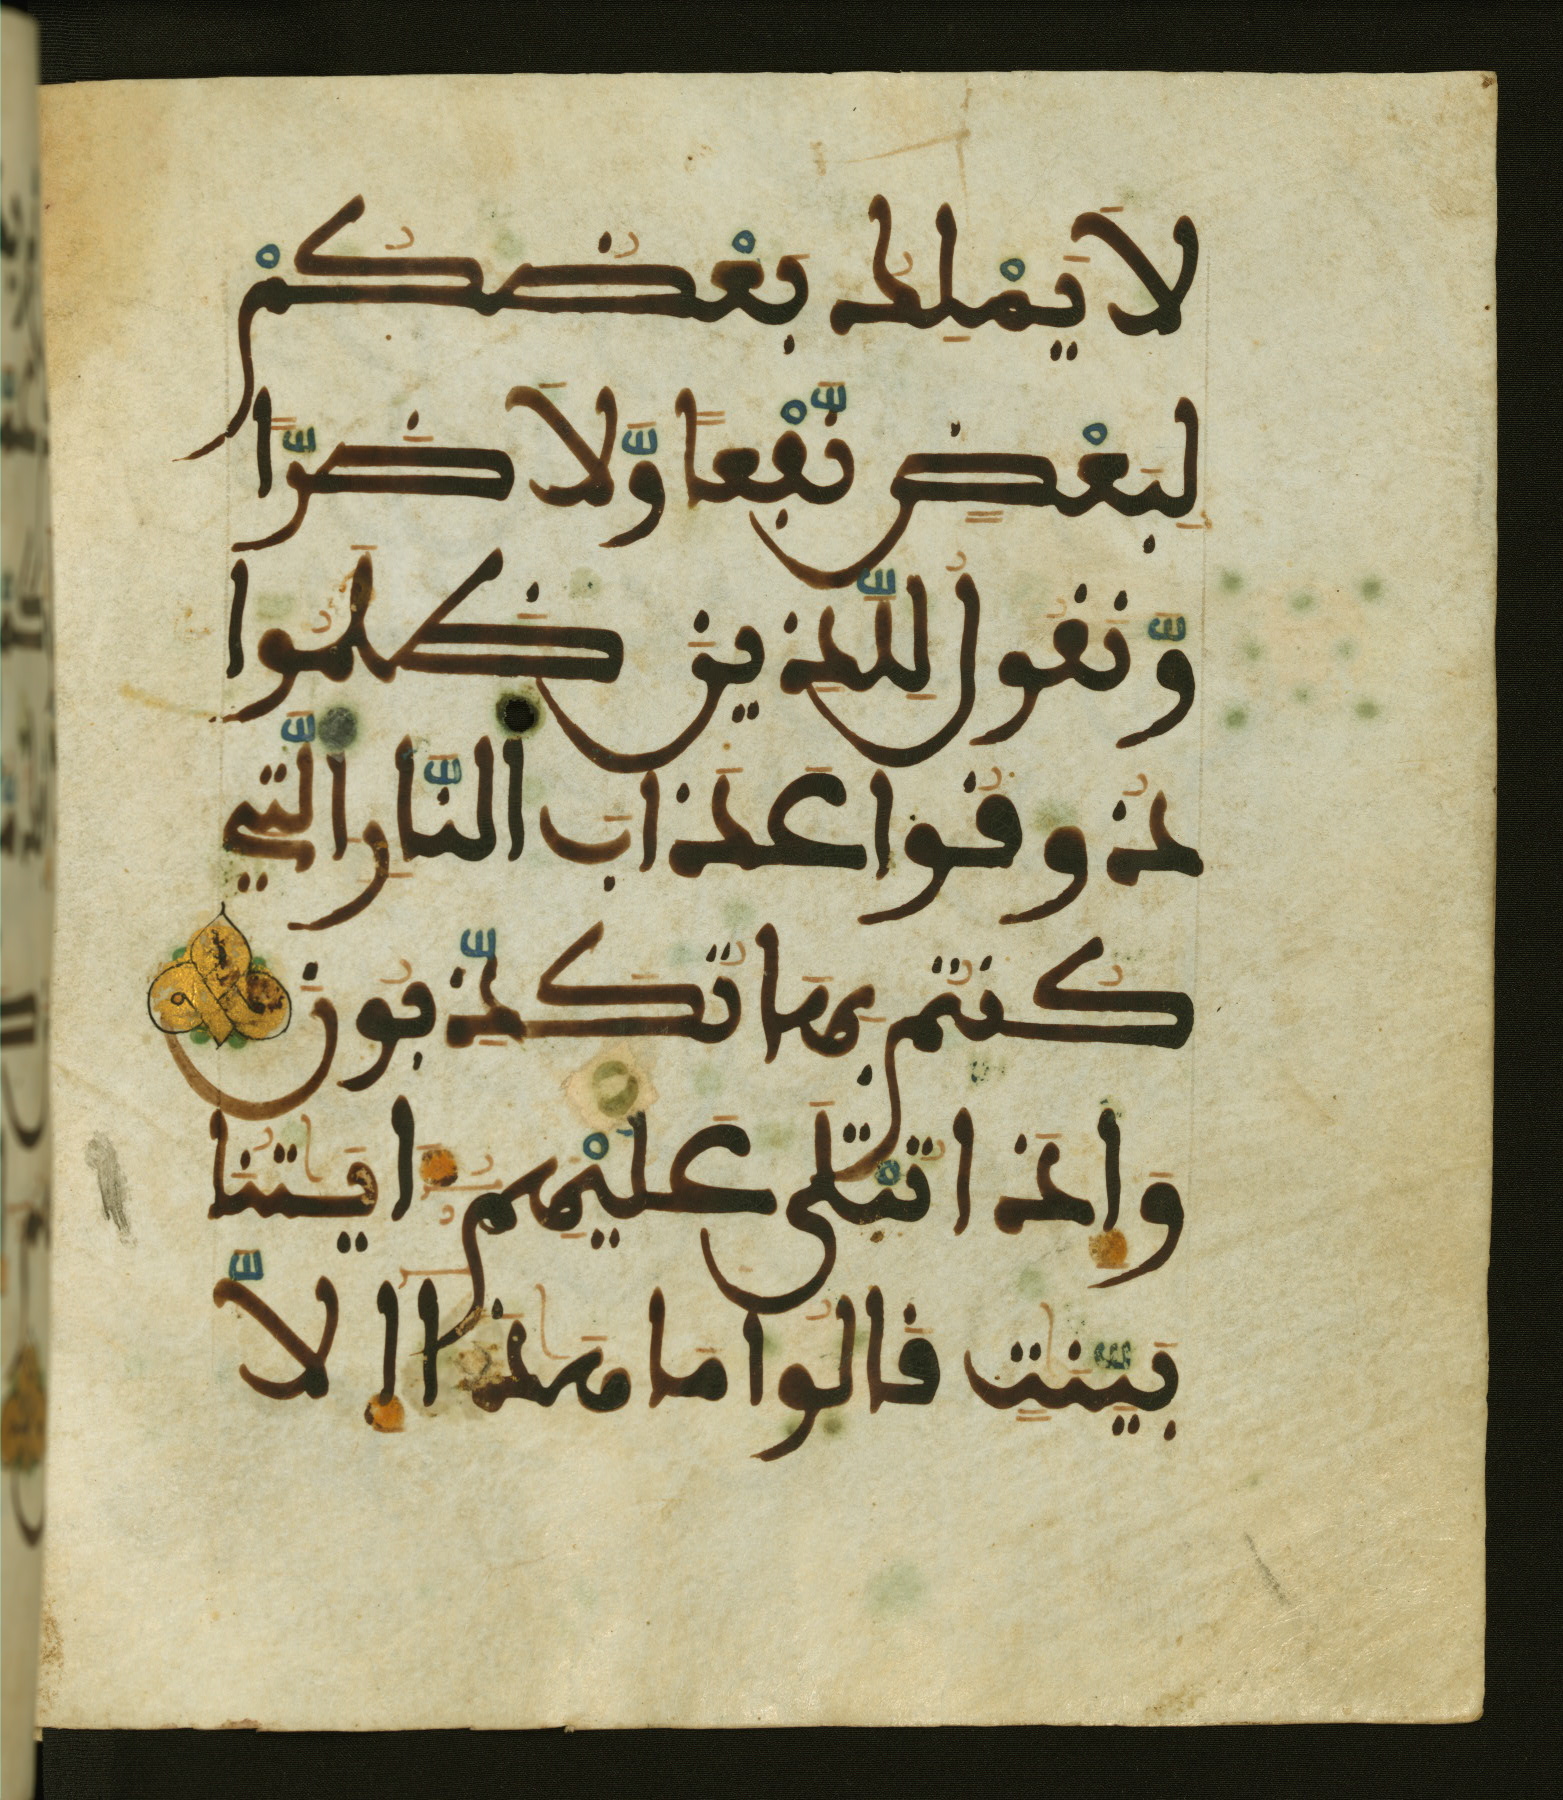 لَا يَمْلِكُ بَعْضُكُمْ
لِبَعْضٍ نَّفْعًا وَّلَا ضَرًّا
وَّنَقُولُ لِلَّذِينَ ظَلَمُوا
ذُوقُوا عَذَابَ النَّارِ الَّتِي
كُنتُم بِهَا تُكَذِّبُونَ
وَإِذَا تُتْلَى عَلَيْهِمُ ءَايَٰتُنَا
بَيِّنَٰتٍ قَالُوا مَا هَٰذَا إِلَّا